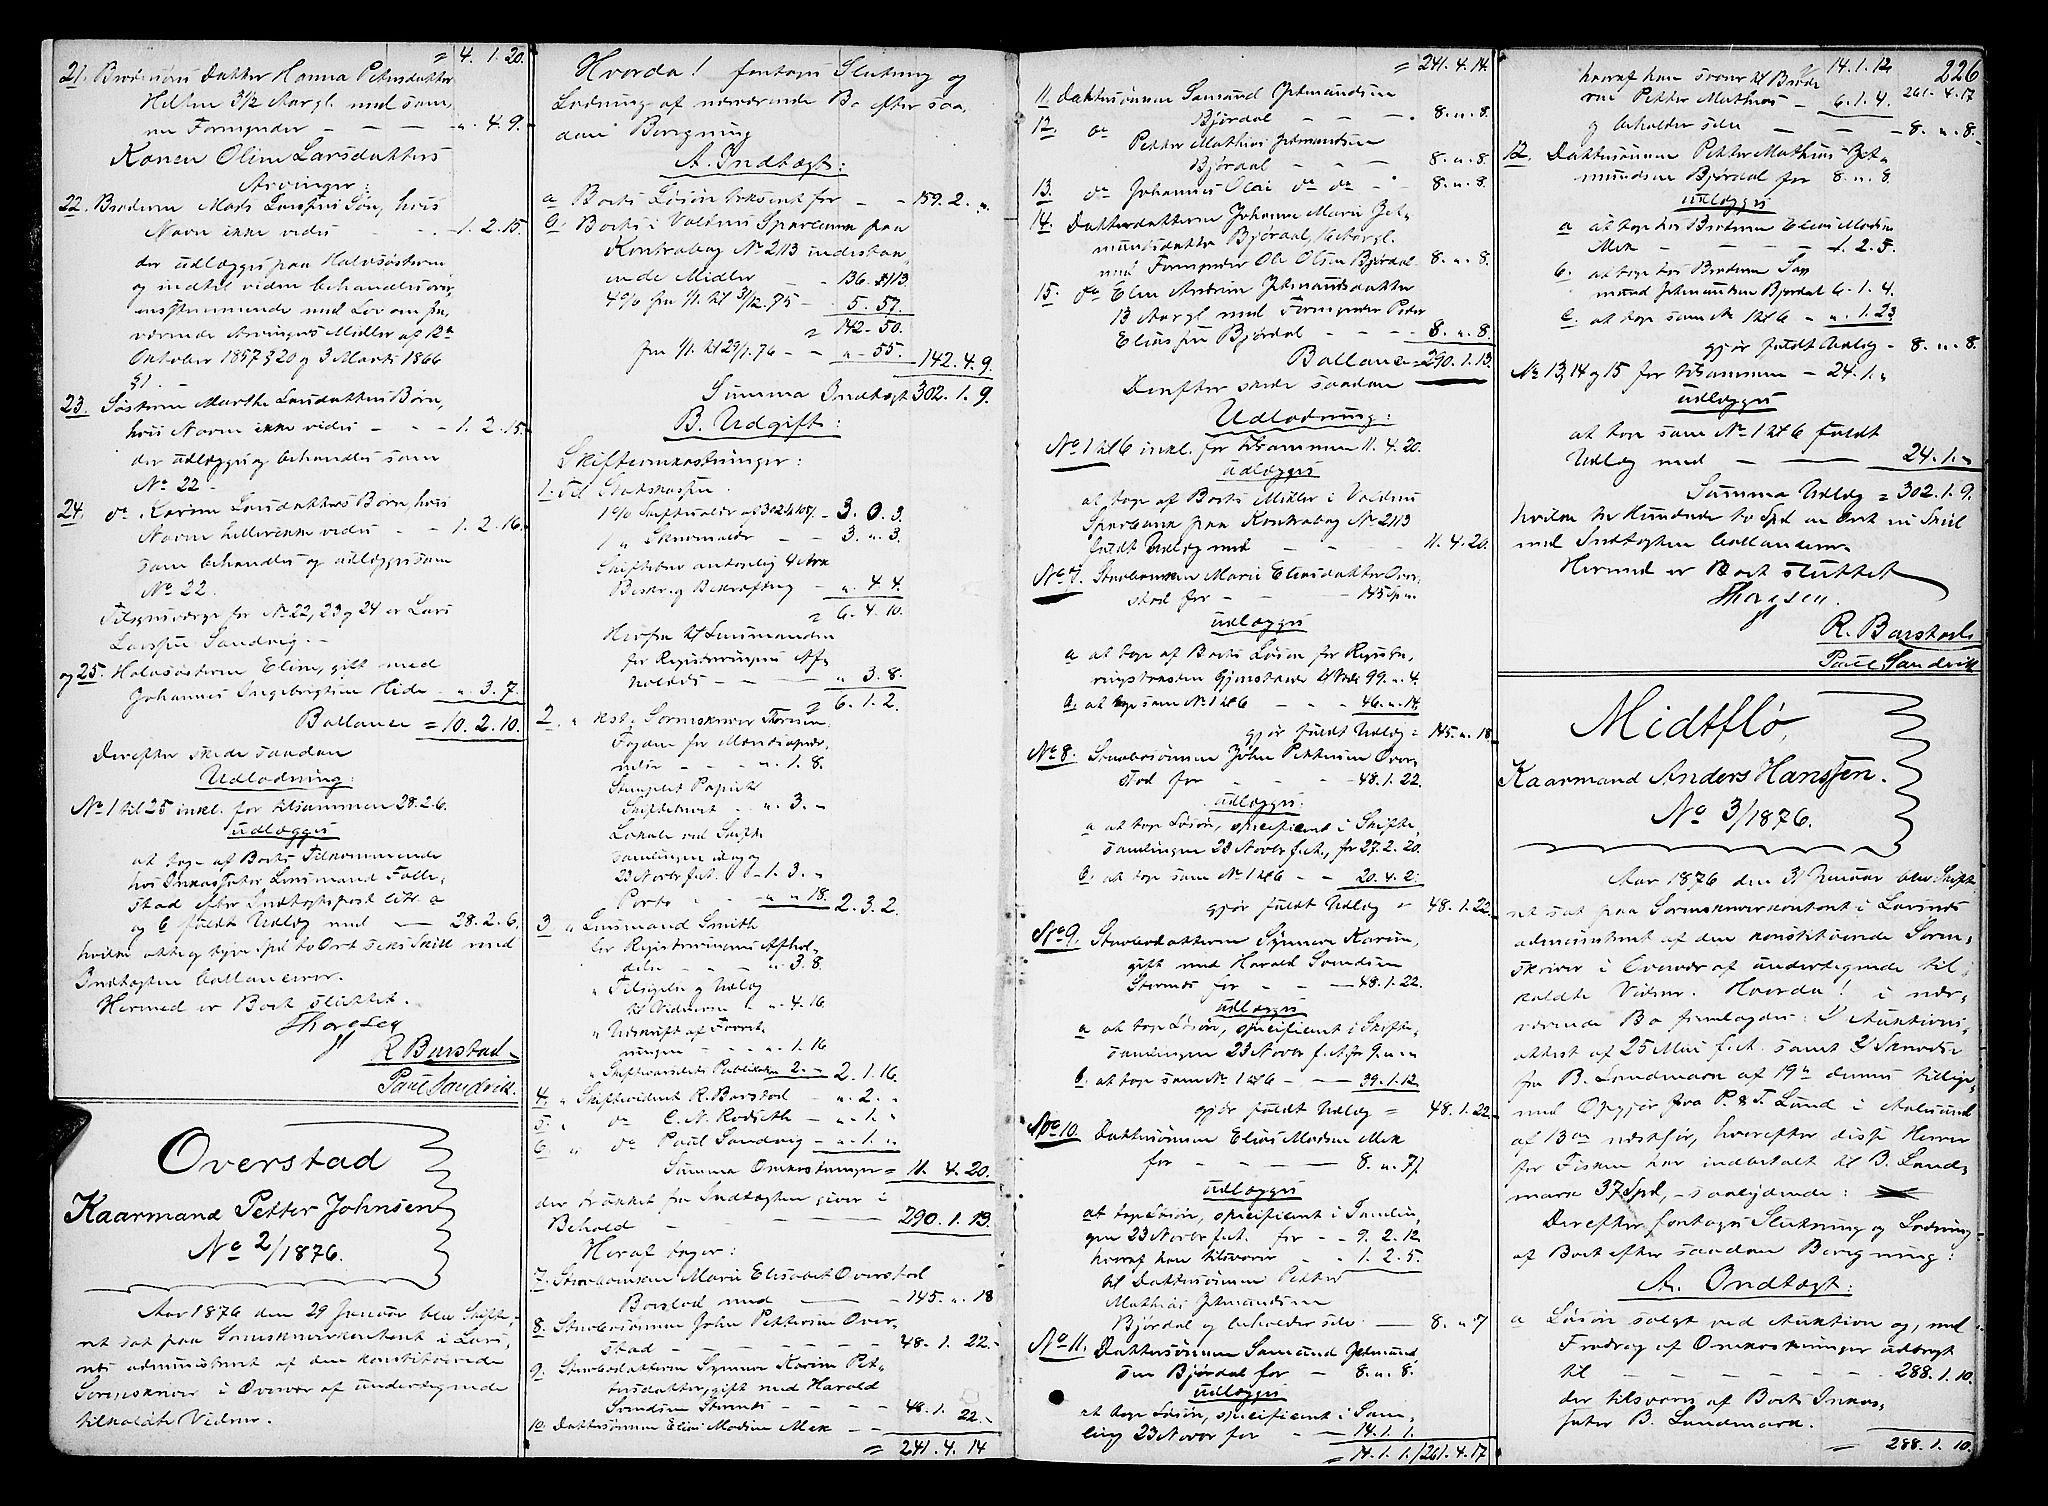 = 4. 1. 20.
21. Brodersøns Datter Hanna Petersdatter
Helten 3 1/2 Aargl. med sam-
me Formynder — — — „. 4. 9.
Konen Oline Larsdatters
Arvinger:
22. Broderen Mads Larsens Søn, hvis
Navn ikke vides - - - 1. 2. 15.
der udlægges paa Halvsøsteren
og indtil viden behandles over-
ensstemmende med Lov om fra-
værende Arvingers Midler af 12te
Oktober 1857 § 20 og 3 Marts 1866
§ 1. —
23. Søsteren Marthe Larsdatters Børn,
hvis Navne ikke vides - - - 1. 2. 15.
der udlægges og behandles som
No 22 -
24. do Karine Larsdatters Børn, hvis
Navne heller ikke vides - - 1. 2. 16.
som behandles og udlægges som
No 22.
Tilsynsværge for No 22, 23 og 24 er Lars
Larsen Sandvig. -
og 25. Halvsøsteren Eline, gift med
Johannes Ingebrigtsen Hide - „. 3. 7.
Ballance = 10. 2. 10.
Derefter skede saadan
Udlodning:
No 1 til 25 inkl. for tilsammen 28. 2. 6.
udlægges
at tage af Boets Tilkommende
hos Inkassator Lensmand Falle-
stad efter Indtægtspost litr. a
og b fuldt Udlæg med — 28. 2. 6.
hvilke otte og tyve Spd to Ort seks Skill med
Indtægten ballancerer.
Hermed er Boet sluttet.
Thoresen
R Barstad
Paul Sandvik.
Overstad
Kaarmand Petter Johnsen
No 2/1876.
Aar 1876 den 29 Januar blev Skifte-
ret sat paa Sorenskriverkontoret i Lars-
nes administreret af den konstituerede
Sorenskriver i Overvær af undertegnede
tilkaldte Vidner.
Hvorda! foretoges Slutning og
Lodning af nærværende Bo efter saa-
dan Beregning
A. Indtægt:
a Boets Løsøre taxeret for - - 159. 2. „.
b. Boets i Valdens Sparebank paa
Kontrabog No 2113 indestaa-
ende Midler - - 136. 113.
4% fra 1/1 til 31/12. 75 - - 5. 57.
= 142 - 50.
fra 1/1 til 29/1. 76 - - „ - 55. 142. 4. 9.
Summa Indtægt 302. 1. 9.
B. Udgift:
Skifteomkostninger:
1. Til Statskassen.
1% Skifteafgift af 302 - 3. 0. 3.
1 „ - - 3. „. 3.
Beskr. og Bekræftning - „. 4 4.
= 6. 4. 10.
Herfra til Lensmanden
for Registreringens Af-
holdelse - - - „ 3. 8.
= 6. 1. 2.
2. „ kst. Sorenskriver Thoresen
Fogden for
- - - „. 1. 8.
Stemplet Papir til
Skiftebrevet - - „. 3. „
Lokale ved Skifte-
samlingen idag og
23 Novbr f. A. - 1. 3. „
Porto - - „ „ 18. 2. 3. 2.
3 „ Lensmand Smith
for Registreringens Afhol-
delse - - - „ 3. 8.
„ Tilsigelse og Udlæg
til Vidnerne - „. 4. 16
„ Udskrift af Forret-
ningen - - - „. 1. 16
„ Skiftevarslets Publikation 2. - 2. 1. 16.
4. „ Skiftevidnet R. Barstad - „. 2. „
5. „ do C. N. Rødseth - „. 1. „
6. „ do Paul Sandvig - „. 1. „
Summa Omkostninger = 11. 4. 20.
der trukket fra Indtægten giver i
Behold - - - — 290. 1. 13.
Heraf tager:
7. Stervboenken Marie Elisabet Overstad
Boslod med - — 145. „. 18
8. Stervbosønnen John Pettersen Over-
stad - - - - 48. 1. 22.
9. Stervbodatteren Synneve Karine Pet-
tersdatter, gift med Harald
Svendsen Stornes - - - 48. 1. 22.
10. Dattersønnen Elias Madsen Mek - -
= 241. 4. 14
= 241. 4. 14.
11. Dattersønnen Samund Jetmundsen
Bjørdal - - - . 8. „. 8.
12. do Petter Mathias Jetmundsen
Bjørdal - - - 8. „. 8
13. do Johannes Olai do do - - 8. „. 8.
14. Datterdatteren Johanne Marie Jet-
mundsdatter Bjørdal, Aargl.
med Formynder Ole Olsen Bjørdal 8. „. 8.
15. do Eline Jetmundsdatter
13 Aargl med Formynder Peder
Eliassen Bjørdal - - - - 8. „. 8.
Ballance = 290. 1. 13.
Derefter skede saadan
Udlodning:
No 1 til 6 inkl. for tilsammen 11. 4. 20.
udlægges
at tage af Boets Midler i Valdens
Sparebank paa Kontrabog No 2113
fuldt Udlæg med - - - - 11. 4. 20.
No 7. Stervboenken Marie Eliasdatter Over-
stad for - - - 145 Sp „.
udlægges
a at tage af Boets Løsøre for Registre-
ringstaxten Gjenstande til Værdi 99. „. 4.
b. at tage som No 1 til 6 - - - 46. „. 14.
gjør fuldt Udlæg = 145. „. 18
No 8. Stervbosønnen John Pettersen Over-
stad for - - - 48. 1. 22.
udlægges:
a at tage Løsøre, specificeret i Skifte-
samlingen 23 Novbr f. A., for 27. 2. 20.
b. at tage som No 1 til 6 - - 20. 4. 2.
gjør fuldt Udlæg = 48. 1. 22
No 9. Stervbodatteren Synneve Karine,
gift med Harald Svendsen
Stornes for - - — 48. 1. 22.
udlægges
a at tage Løsøre, specificeret i Skifte-
samlingen 23 Novbr f. A. for 9. „. „
b. at tage som No 1 til 6 - - — 39. 1. 12
gjør fuldt Udlæg = 48. 1. 22.
No 10 Dattersønnen Elias Madsen Mek
for - - - — 8. „. 7
udlægges
at tage Løsøre, specificeret i Samlin-
gen 23 Novbr f. A. for - - 9. 2. 12
hvoraf han tilsvarer - - 1. 2. 5.
til Dattersønnen Petter
Mathias Jetmundsen
Bjørdal og beholder selv — 8. „. 7
No 11. Dattersønnen Samund Jetmund-
sen Bjørdal for - - 8. „. 8.
udlægges
at tage Løsøre, specificeret i Sam-
ling 23 Novbr for - - 14. 1. 1.
= 14. 1. 1. / 261. 4. 17
226
14. 1. 12
261. 4. 17
hvoraf han svarer til Brode-
ren Petter Mathias - 6. 1. 4.
og beholder selv — — - 8. „. 8.
12. Dattersønnen Petter Mathias Jet-
mundsen Bjørdal for 8. „. 8.
udlægges
a at tage hos Broderen Elias Madsen
Mek - - - - 1. 2. 5.
b. at tage hos Broderen Sa-
mund Jetmundsen Bjørdal 6. 1. 4.
c. at tage som No 1 til 6 - „. 1. 23
gjør fuldt Udlæg - 8. „. 8.
No 13, 14 og 15 for tilsammen - 24. 1. „
udlægges
at tage som No 1 til 6 fuldt
Udlæg med — — 24. 1. „
Summa Udlæg = 302. 1. 9.
hvilke tre Hundrede to Spd en Ort ni Skill
med Indtægten ballancerer.
Hermed er Boet sluttet
Thoresen.
R. Barstad
Paul Sandvik
Midtflø,
Kaarmand Anders Hanssen.
No 3/1876.
Aar 1876 den 31 Januar blev Skifte-
ret sat paa Sorenskriverkontoret i Larsnes
administreret af den konstituerede Soren-
skriver i Overvær af undertegnede til-
kaldte Vidner. Hvorda! i nær-
værende Bo fremlagdes: 1/ Auktions-
attest af 25 Mai f. A. samt 2/ Skrivelse
fra B. Landmark af 19de dennes tillige-
med Opgjør fra P. & T. Lund i Aalesund
af 13de næstfør, hvorefter disse Herrer
for Fisken har indbetalt til B. Land-
mark 37 Spd, - saalydende:
Derefter foretoges Slutning og Lodning
af Boet efter saadan Beregning:
A. Indtægt:
a Løsøre solgt ved Auktion og, med
Fradrag af Omkostninger udbragt
til - - - - - 288. 1. 10.
der tilsvares af Boets Inkas-
sator B. Landmark.
= 288. 1. 10.